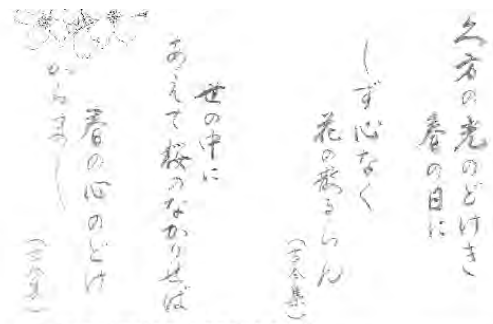 久方の光のどけき
春の日に
しず心なく
花の散るらん
（古今集）
世の中に
あえて桜のなかりせば
春の心のどけ
からまし
（古今集）